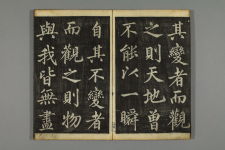 其變者而觀
之則天地曾
不能以一瞬
自其不變者
而觀之則物
與我皆無盡